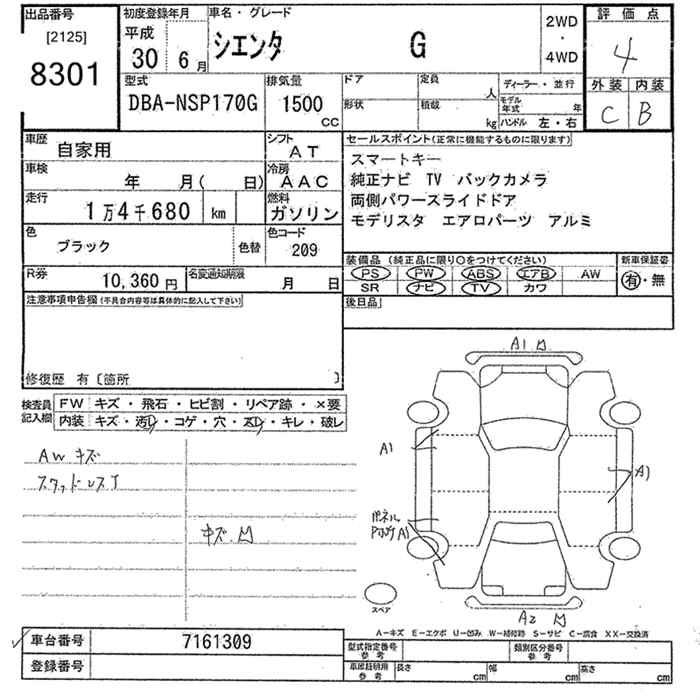 出品番号
[2125]
8301
初度登録年月
平成
30 年 6 月
車名・グレード
シエンタ G
2WD
・
4WD
評価点
4
外装 内装
C B
型式
DBA-NSP170G
排気量
1500
CC
ドア
定員
人
ディーラー・並行
形状
積載
kg
モデル年式 年
ハンドル 左・右
車歴
自家用
シフト
AT
車検
年 月( 日)
冷房
AAC
走行
1万4千680 km
燃料
ガソリン
色
ブラック
色替
色コード
209
R券
10,360円
名変通知期限
月 日
セールスポイント(正常に機能するものに限ります)
スマートキー
純正ナビ TV バックカメラ
両側パワースライドドア
モデリスタ エアロパーツ アルミ
装備品 (純正品に限り○をつけてください)
新車保証書
PS PW ABS エアB AW
有・無
SR ナビ TV カワ
後日品
注意事項申告欄(不具合内容等は具体的に記入して下さい)
修復歴 有〔箇所 〕
検査員記入欄
FW キズ・飛石・ヒビ割・リペア跡・×要
内装 キズ・汚レ・コゲ・穴・スレ・キレ・破レ
AWキズ
スタッドレスT
キズ 凹
A1 凹
A1
A1
A1
A2 凹
スペア
A―キズ E―エクボ U―凹み W―補修跡 S―サビ C―腐食 XX―交換済
車台番号
7161309
登録番号
型式指定番号
参考
類別区分番号
参考
車庫証明用
参考
長さ cm
幅 cm
高さ cm